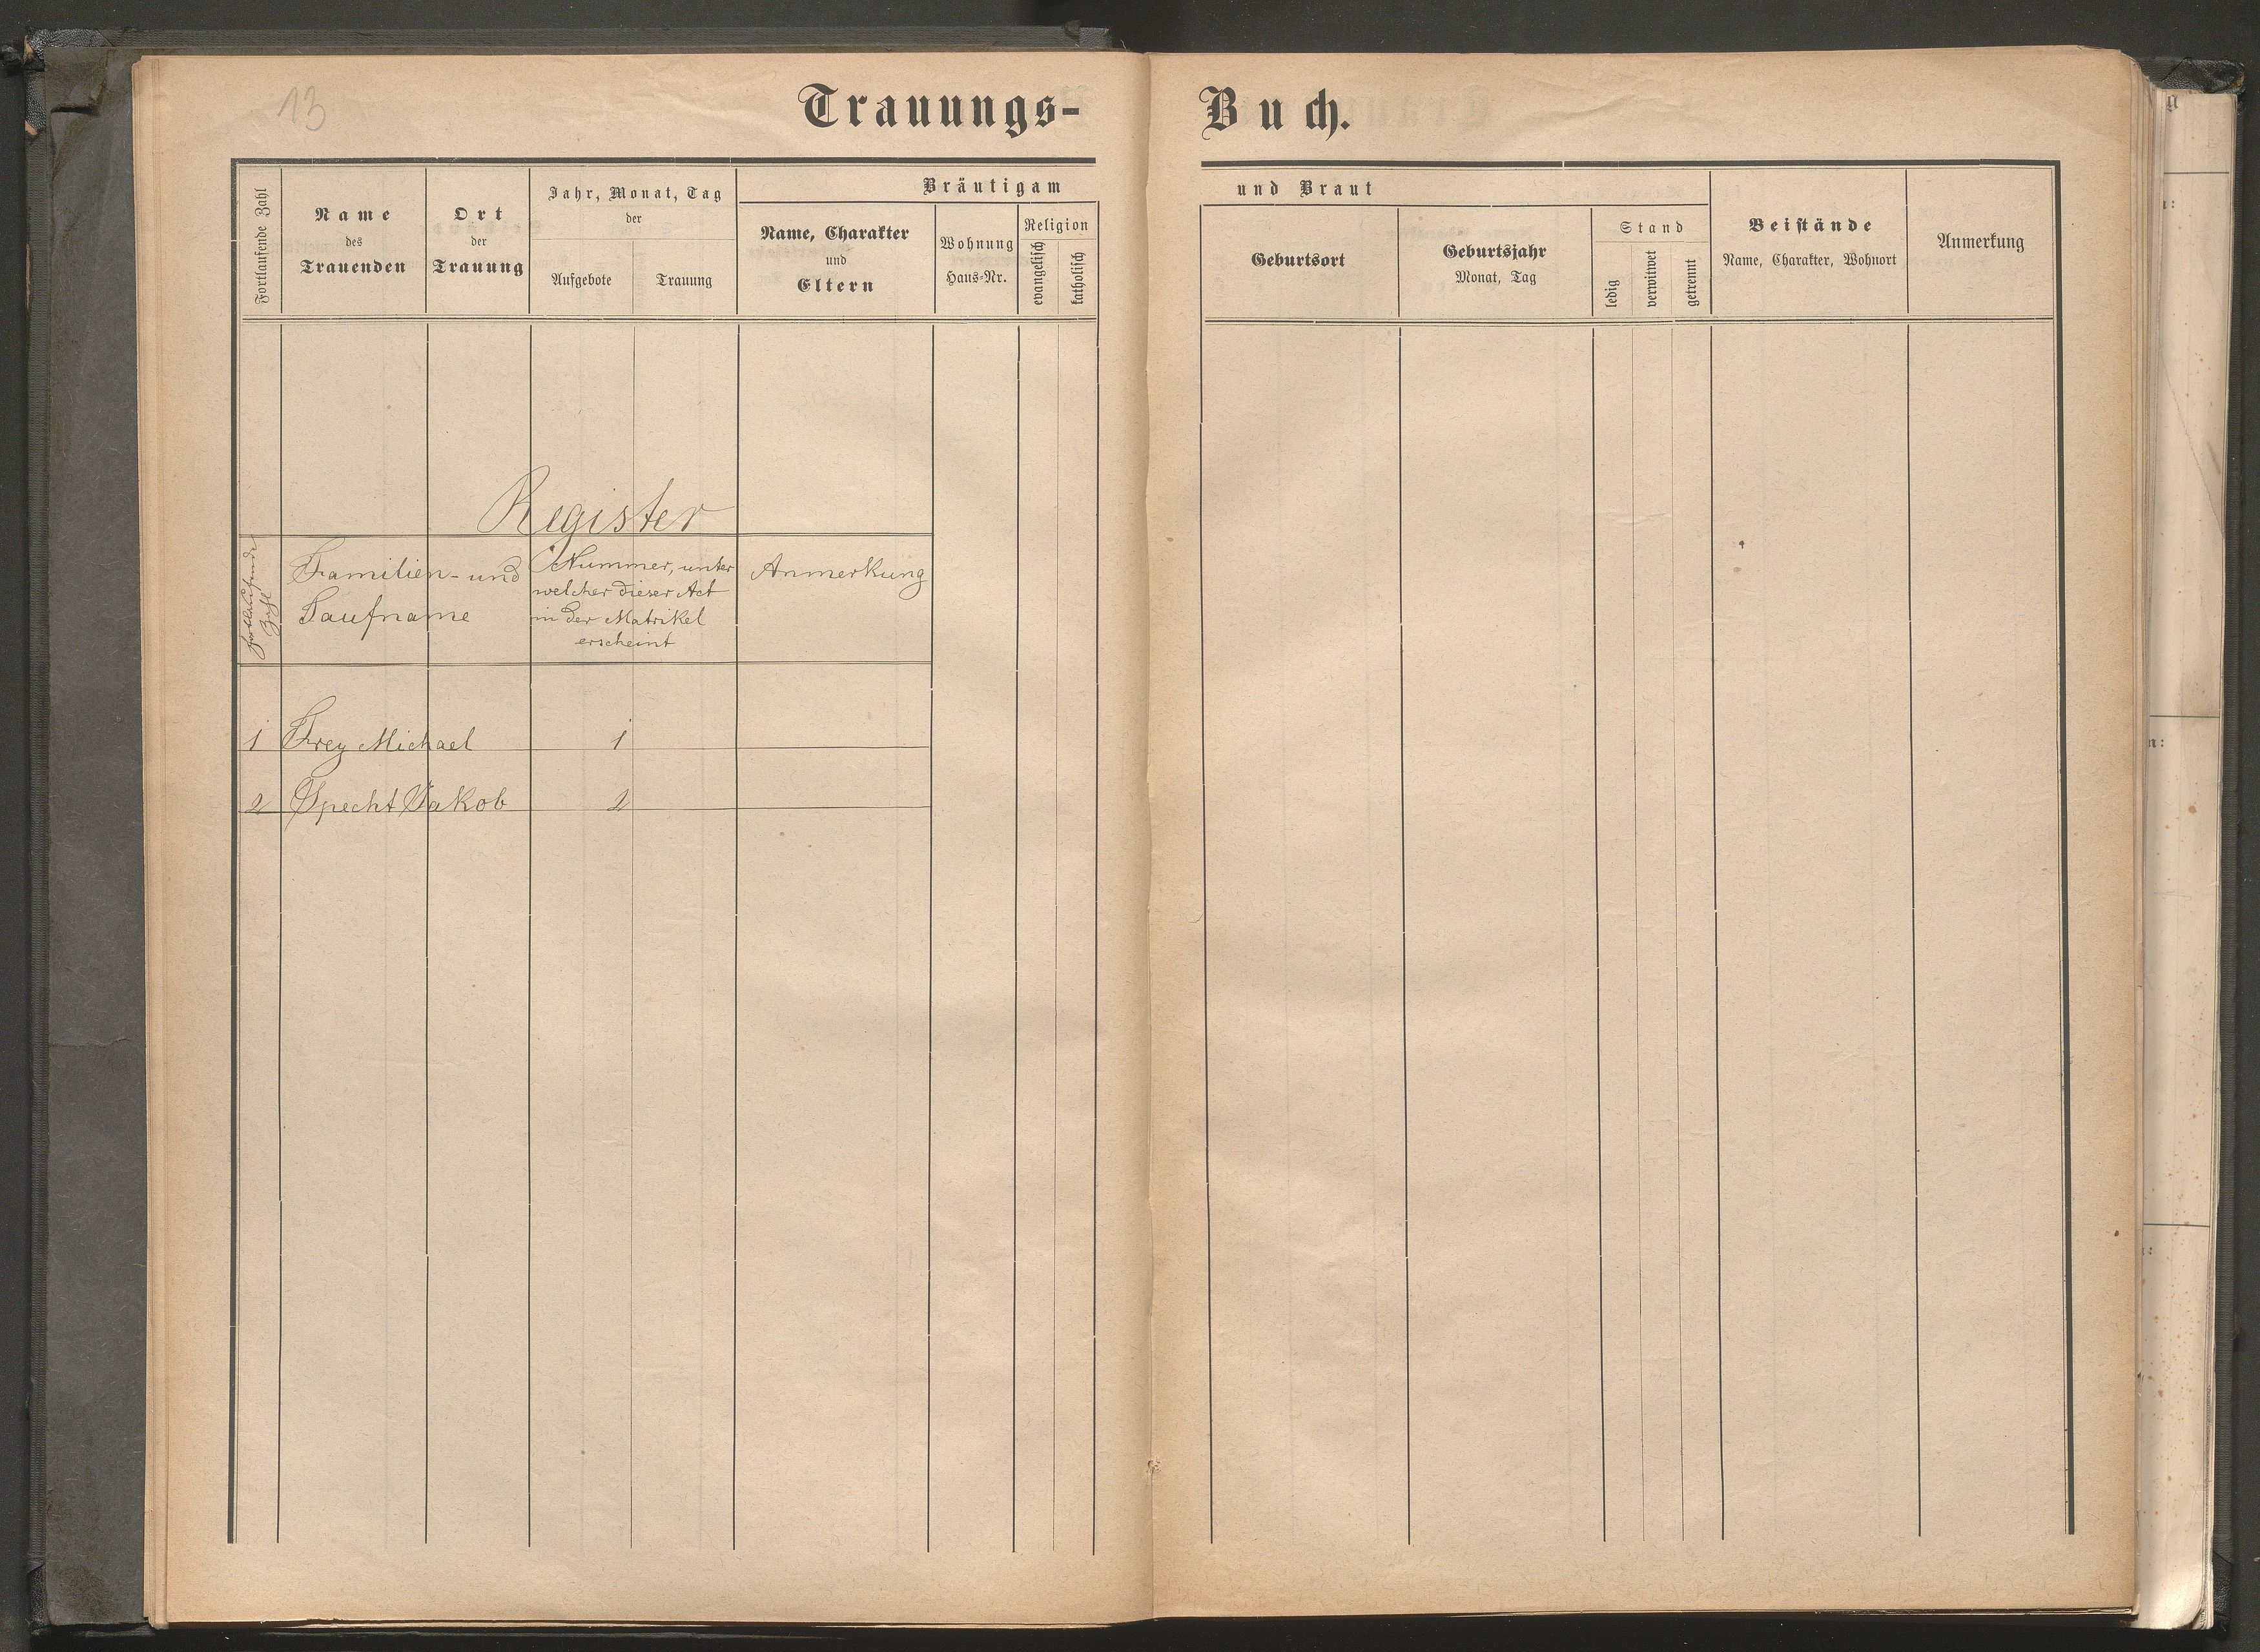 13
Trauungs-
Buch.
Fortlaufende Zahl
Name
des
Trauenden
Ort
der
Trauung
Jahr, Monat, Tag
der
Aufgebote
Trauung
Bräutigam
Name, Charakter
und
Eltern
Wohnung
Haus-Nr.
Religion
evangelisch
katholisch
und Braut
Geburtsort
Geburtsjahr
Monat, Tag
Stand
ledig
verwitwet
getrennt
Beistände
Name, Charakter, Wohnort
Anmerkung
Register
fortlaufende
Zahl
Familien- und
Taufname
Nummer, unter
welcher dieser Act
in der Matrikel
erscheint
Anmerkung
1 Frey Michael 1
2 Specht Jakob 2